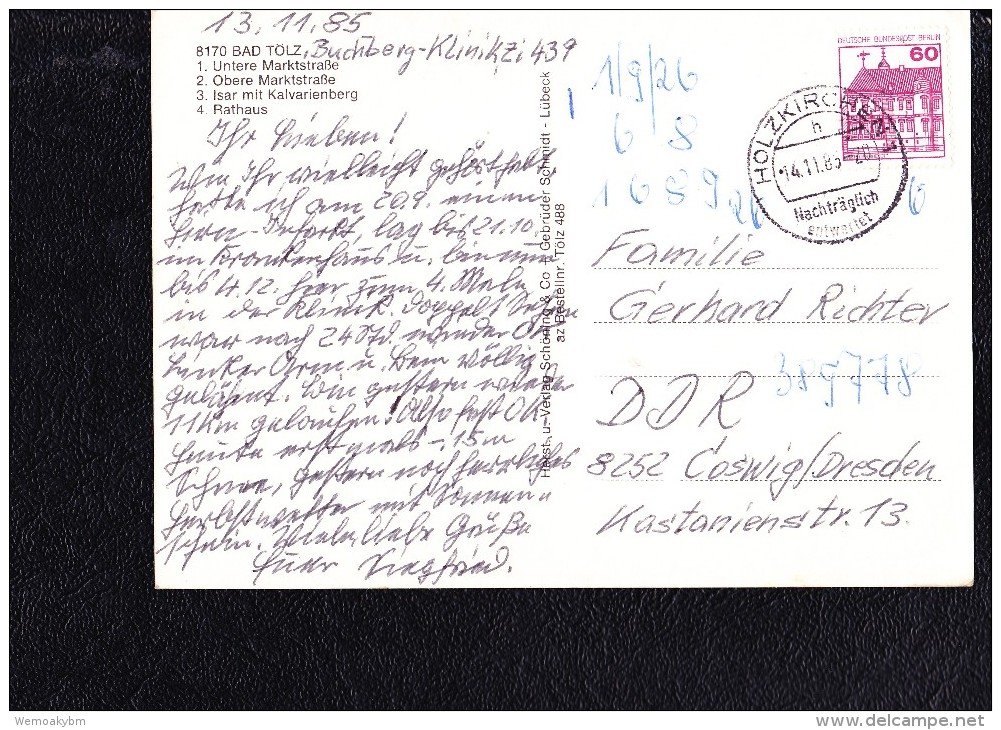 13.11.85
8170 BAD TÖLZ, Buchberg-Klinik Zi 439
1. Untere Marktstraße
2. Obere Marktstraße
3. Isar mit Kalvarienberg
4. Rathaus
Ihr Lieben!
Wie Ihr vielleicht gehört habt
hatte ich am 20.9. einen
Herz-Infarkt, lag bis 21.10.
im Krankenhaus u. bin nun
bis 4.12. hier zum 4. Male
in der Klinik. Doppelt Sehen
war nach 24 Std. wieder Ok
linker Arm u. Bein völlig
gelähmt. Bin gestern wieder
11 km gelaufen. Also fast Ok
Heute erstmals - 15 cm
Schnee, gestern noch herrliches
Herbstwetter mit Sonnen
schein. Viele liebe Grüße
Euer Siegfried.
Herst. u. Verlag Schöning & Co · Gebrüder Schmidt - Lübeck
az Bestellnr. Tölz 488
DEUTSCHE BUNDESPOST BERLIN
60
HOLZKIRCHEN
h
14.11.85 - 20
Nachträglich
entwertet
1/9/26
6 8
1689 26 6
Familie
Gerhard Richter
389778
DDR
8252 Coswig/Dresden
Kastanienstr. 13.
Wemoakybm
www.delcampe.net